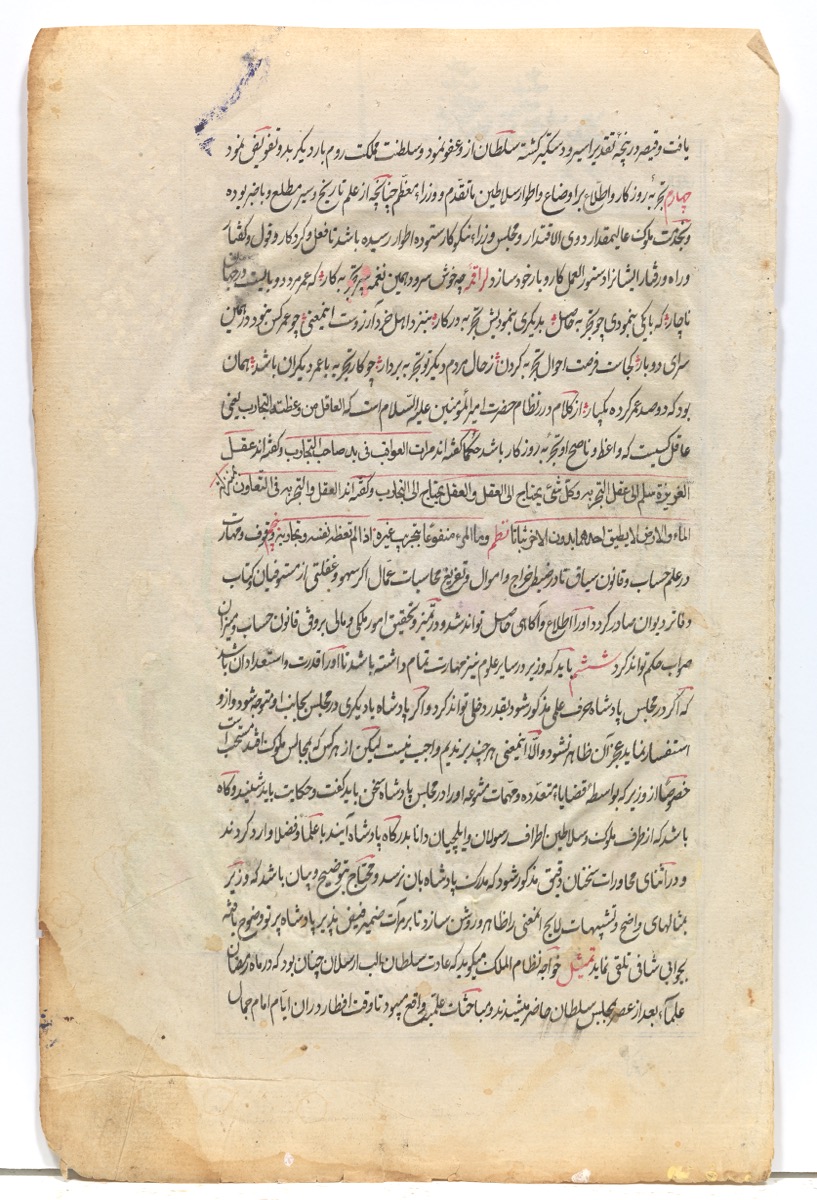 یافت و قیصر در پنجهٔ تقدیر اسیر و دستگیر گشته سلطان ازو عفو نمود و سلطنت مملکت روم بار دیگر بدو تفویض نمود
چهارم تجربهٔ روزکار و اطلاع بر اوضاع و اطوار سلاطین ماتقدم و وزراء معظم چنانچه از علم تاریخ و سیر مطلع و باخبر بوده
و بخدمت ملوک عالیمقدار ذوی الاقتدار و مجلس وزراء نیکوکار ستوده اطوار رسیده باشد تا فعل و کردکار و قول و کفتار
و راه و رفتار ایشانرا دستور العمل کار و بار خود سازد لراقمه چه خوش سرود همین نغمه پیر تجربه کار که عمر مرد دو بایست در جهان
ناچار که با یکی بنمودی چو تجربه حاصل بدیکری بنمودیش تجربه در کار منیز داهل خرد آرزوست اینمعنی چو عمر کس نبود در همین
سرای دو بار کجاست فرصت احوال تجربه کردن ز حال مردم دیکر تو تجربه بردار چو کار تجربه با عمر دیکران باشد همان
بود که دو صد عمر کرده یکبار از کلام درر نظام حضرت امیر المؤمنین علیه السلام است که العاقل من وعظته التجارب یعنی
عاقل کسیست که واعظ و ناصح او تجربهٔ روزکار باشد حکما کفته اند مرات العواقب فی ید صاحب التجارب و کفته اند عقل
الغریزة سلم الی عقل التجربه و کل شیٔ یحتاج الی العقل و العقل یحتاج الی التجارب و کفته اند العقل و التجربه فی التعاون بمنزلة
الماء و الارض لا یطیق احدهما بدون الاخر نباتا نظم و ما المرء منفوعا بتجریب غیره اذا لم تعظه نفسه و تجاربه پنجم وقوف و مهارت
در علم حساب و قانون سیاق تا در ضبط خراج و اموال و تفریغ محاسبات عمال اکر سهو و غفلتی از مستوفیان و کتاب
دفاتر دیوان صادر کردد او را اطلاع و آکاهی حاصل تواند شد و در تمیز و تحقیق امور ملکی و مالی بر وفق قانون حساب و میزان
صواب حکم تواند کرد ششم باید که وزیر در سایر علوم نیز مهارت تمام داشته باشد تا او را قدرت و استعداد آن باشد
که اکر در مجلس پادشاه حرف علمی مذکور شود بقدر دخلی تواند کرد و اکر پادشاه یا دیکری در مجلس بجانب او متوجه شود و ازو
استفسار نماید عجز آن ظاهر نشود و الّا اینمعنی هر چند بر ندیم واجب نیست لیکن از هر کس که بمجالس ملوک افتد مستحب است
خصوصا از وزیر که بواسطهٔ قضایاء متعدده و مهمات متنوعه او را در مجلس پادشاه سخن باید کفت و حکایت باید شنید و کاه
باشد که از طرف ملوک و سلاطین اطراف رسولان و ایلچیان دانا بدرکاه پادشاه آیند با علما و فضلا وارد کردند
و در اثنای محاورات سخنان دقیق مذکور شود که مدرک پادشاه بان نرسد و محتاج بتوضیح و بیان باشد که وزیر
بمثالهای واضح و تشبیهات لایح المعنی را ظاهر و روشن سازد تا بر مرآت ضمیر فیض پذیر پادشاه پرتو وضوح یافته
بجوابی شافی تلقی نماید تمثیل خواجه نظام الملک میکوید که عادت سلطان الب ارسلان چنان بود که در ماه رمضان
علماء بعد از عصر بمجلس سلطان حاضر میشدند و مباحثات علمی واقع میبود تا وقت افطار دران ایام امام جمال